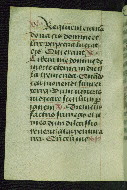 Requiem eternam
dona eis domine et
lux perpetua luceat
eis Qui erant
Libera me domine de
morte eterna in die il
la tremenda Quando
celi mouendi sunt et
terra Dum veneris
iudicare seculum per ig
nem Tremens
factus sum ego et ti
meo dum discussio ve
nerit atque ventura
ira